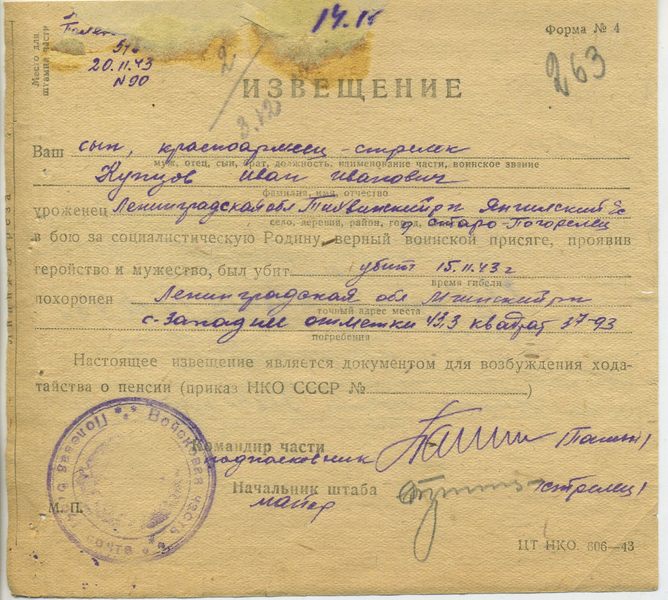 14.11
Форма № 4
Место для
штампа части
20.11.43
N 90
2
3.12
263
ИЗВЕЩЕНИЕ
Ваш сын, красноармеец-стрелек
муж, отец, сын, брат, должность, наименование части, воинское звание
Купцов Иван Иванович
фамилия, имя, отчество
уроженец Ленинградской обл Тихвинский р-н Янгинский с/с
село, деревня, район, город, область
д старо-Погорелец
в бою за социалистическую Родину, верный воинской присяге, проявив
геройство и мужество, был убит убит 15.11.43 г
время гибели
похоронен Ленинградская обл Мгинский р-н
точный адрес места
с-западнее отметки 43,3 квадрат 37-93
погребения
Настоящее извещение является документом для возбуждения хода-
тайства о пенсии (приказ НКО СССР №)
Командир части
подполковник
Начальник штаба
майор
(стрелец)
М. П.
Полевая почта
Войсковая часть
ЦТ НКО. 606—43
линия отреза